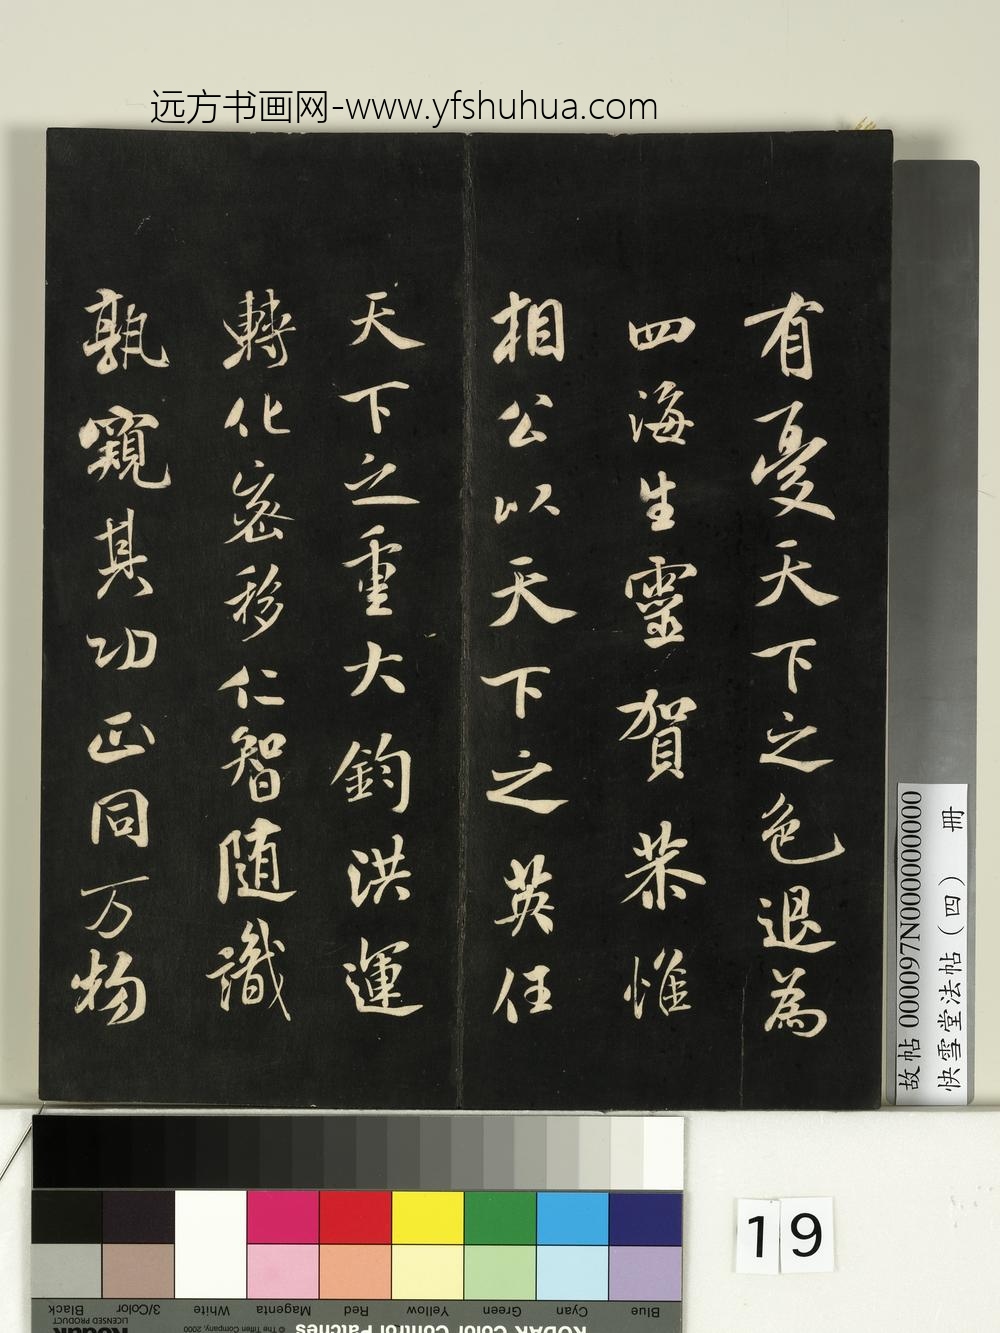 远方书画网-www.yfshuhua.com
有憂天下之色退為
四海生靈賀恭惟
相公以天下之英任
天下之重大鈞洪運
轉化密移仁智随識
孰窺其功正同万物
故帖 000097N000000000
快雪堂法帖（四） 册
19
Blue
Cyan
Green
Yellow
Red
Magenta
White
3/Color
Black
KODAK Color Control Patches
© The Tiffen Company, 2000
Kodak
LICENSED PRODUCT